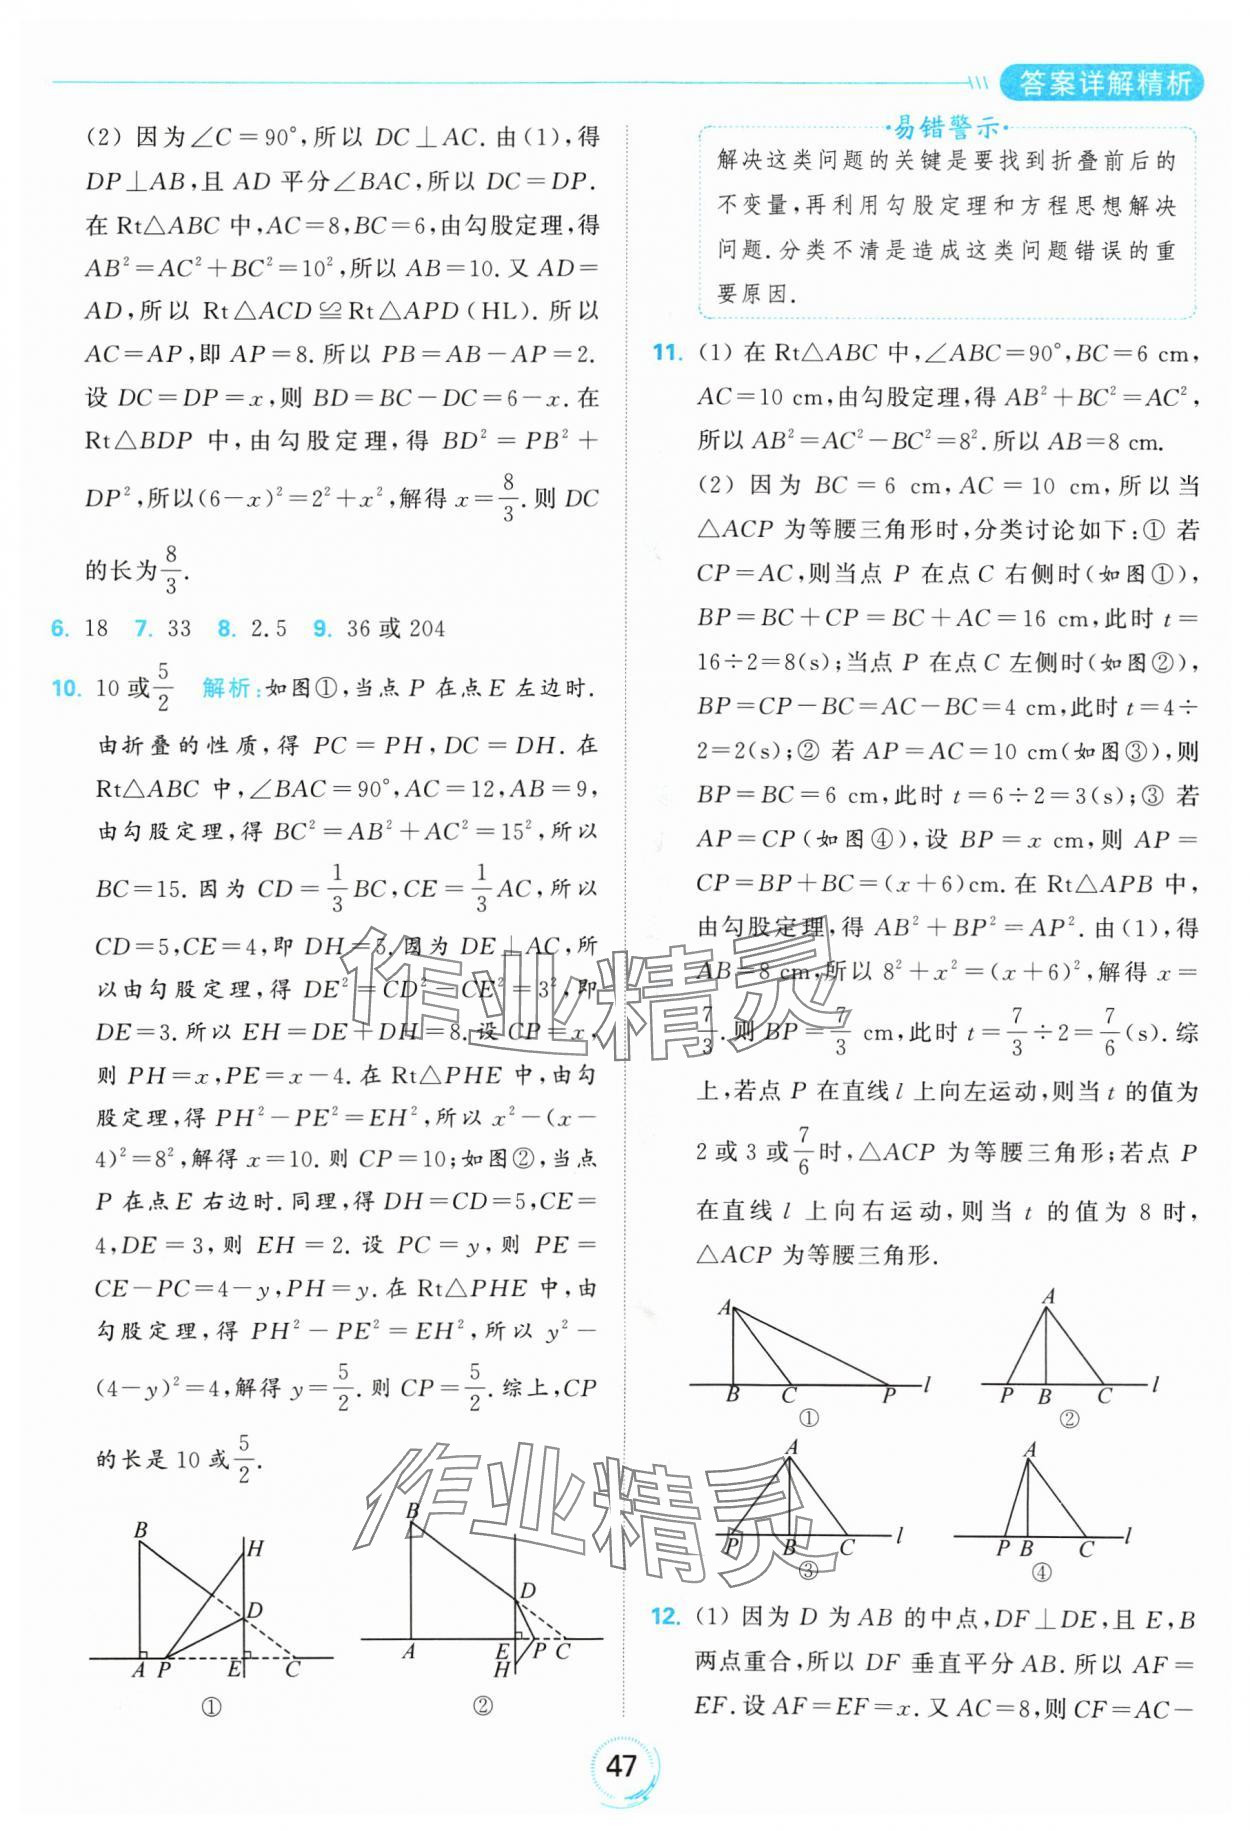 答案详解精析
(2) 因为∠C=90°,所以 DC⊥AC.由(1),得
DP⊥AB,且 AD 平分∠BAC,所以 DC=DP.
在 Rt△ABC 中,AC=8,BC=6,由勾股定理,得
AB²=AC²+BC²=10²,所以 AB=10.又 AD=
AD,所以 Rt△ACD≌Rt△APD(HL).所以
AC=AP,即 AP=8.所以 PB=AB-AP=2.
设 DC=DP=x,则 BD=BC-DC=6-x.在
Rt△BDP 中,由勾股定理,得 BD²=PB²+
DP²,所以(6-x)²=2²+x²,解得 x=8/3.则 DC
的长为8/3.
6. 18 7. 33 8. 2.5 9. 36 或 204
10. 10 或5/2 解析:如图①,当点 P 在点 E 左边时.
由折叠的性质,得 PC=PH,DC=DH.在
Rt△ABC 中,∠BAC=90°,AC=12,AB=9,
由勾股定理,得 BC²=AB²+AC²=15²,所以
BC=15.因为 CD=1/3BC,CE=1/3AC,所以
CD=5,CE=4,即 DH=5.因为 DE⊥AC,所
以由勾股定理,得 DE²=CD²-CE²=3²,即
DE=3.所以 EH=DE+DH=8.设 CP=x,
则 PH=x,PE=x-4.在 Rt△PHE 中,由勾
股定理,得 PH²-PE²=EH²,所以 x²-(x-
4)²=8²,解得 x=10.则 CP=10;如图②,当点
P 在点 E 右边时.同理,得 DH=CD=5,CE=
4,DE=3,则 EH=2.设 PC=y,则 PE=
CE-PC=4-y,PH=y.在 Rt△PHE 中,由
勾股定理,得 PH²-PE²=EH²,所以 y²-
(4-y)²=4,解得 y=5/2.则 CP=5/2.综上,CP
的长是 10 或5/2.
B H D A P E C
①
B D A E P C H
②
易错警示
解决这类问题的关键是要找到折叠前后的
不变量,再利用勾股定理和方程思想解决
问题.分类不清是造成这类问题错误的重
要原因.
11. (1) 在 Rt△ABC 中,∠ABC=90°,BC=6 cm,
AC=10 cm,由勾股定理,得 AB²+BC²=AC²,
所以 AB²=AC²-BC²=8².所以 AB=8 cm.
(2) 因为 BC=6 cm,AC=10 cm,所以当
△ACP 为等腰三角形时,分类讨论如下:① 若
CP=AC,则当点 P 在点 C 右侧时(如图①),
BP=BC+CP=BC+AC=16 cm,此时 t=
16÷2=8(s);当点 P 在点 C 左侧时(如图②),
BP=CP-BC=AC-BC=4 cm,此时 t=4÷
2=2(s);② 若 AP=AC=10 cm(如图③),则
BP=BC=6 cm,此时 t=6÷2=3(s);③ 若
AP=CP(如图④),设 BP=x cm,则 AP=
CP=BP+BC=(x+6)cm.在 Rt△APB 中,
由勾股定理,得 AB²+BP²=AP².由(1),得
AB=8 cm,所以 8²+x²=(x+6)²,解得 x=
7/3.则 BP=7/3 cm,此时 t=7/3÷2=7/6(s).综
上,若点 P 在直线 l 上向左运动,则当 t 的值为
2 或 3 或7/6时,△ACP 为等腰三角形;若点 P
在直线 l 上向右运动,则当 t 的值为 8 时,
△ACP 为等腰三角形.
A B C P l
①
A P B C l
②
A P B C l
③
A P B C l
④
12. (1) 因为 D 为 AB 的中点,DF⊥DE,且 E,B
两点重合,所以 DF 垂直平分 AB.所以 AF=
EF.设 AF=EF=x.又 AC=8,则 CF=AC-
47
作业精灵
作业精灵